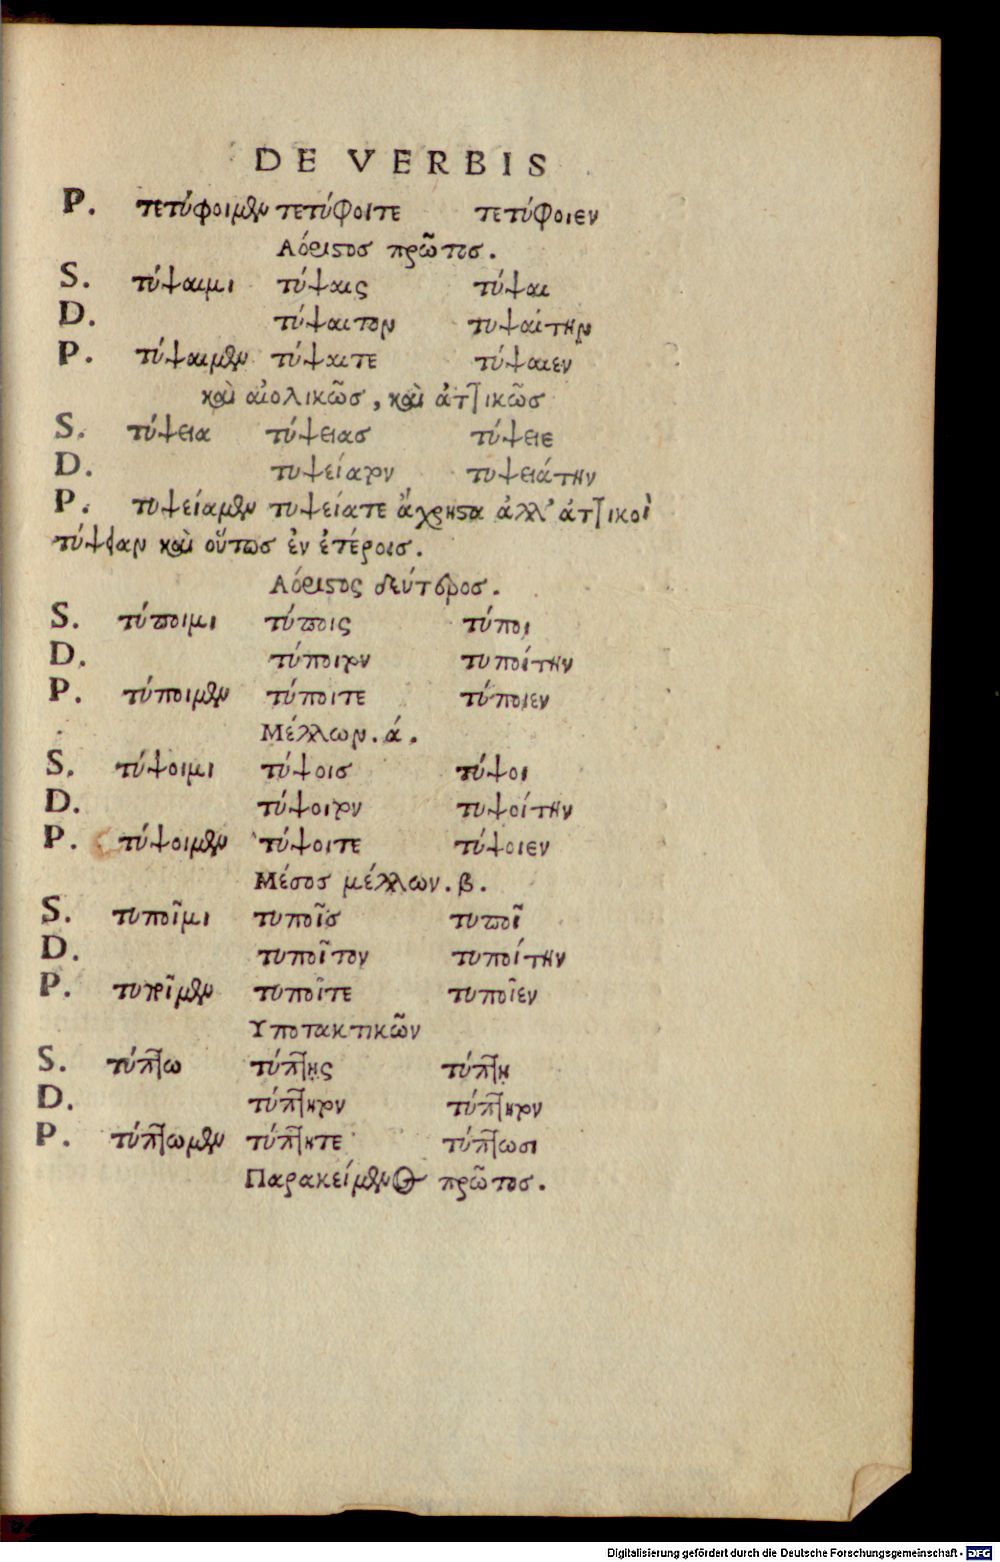 DE VERBIS
P. τετύφοιμεν τετύφοιτε τετύφοιεν
Αόριστοσ πρῶτοσ.
S. τύψαιμι τύψαις τύψαι
D. τύψαιτον τυψαίτην
P. τύψαιμεν τύψαιτε τύψαιεν
καὶ αἰολικῶσ, καὶ ἀττικῶσ
S. τύψεια τύψειασ τύψειε
D. τυψείατον τυψειάτην
P. τυψείαμεν τυψείατε ἄχρηστα ἀλλ' ἀττικοὶ
τύψειαν καὶ οὕτωσ ἐν ἑτέροισ.
Αόριστος δεύτεροσ.
S. τύποιμι τύποις τύποι
D. τύποιτον τυποίτην
P. τύποιμεν τύποιτε τύποιεν
Μέλλων. ά.
S. τύψοιμι τύψοισ τύψοι
D. τύψοιτον τυψοίτην
P. τύψοιμεν τύψοιτε τύψοιεν
Μέσοσ μέλλων. β.
S. τυποῖμι τυποῖσ τυποῖ
D. τυποῖτον τυποίτην
P. τυποῖμεν τυποῖτε τυποῖεν
Υποτακτικῶν
S. τύπτω τύπτῃς τύπτῃ
D. τύπτητον τύπτητον
P. τύπτωμεν τύπτητε τύπτωσι
Παρακείμενος πρῶτοσ.
Digitalisierung gefördert durch die Deutsche Forschungsgemeinschaft - DFG